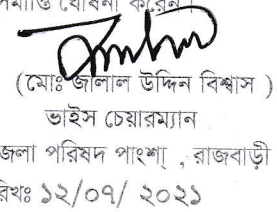 ঘোষনা করেন
(মোঃ জালাল উদ্দিন বিশ্বাস )
ভাইস চেয়ারম্যান
জলা পরিষদ পাংশা , রাজবাড়ী
রিখঃ ১২/০৭/ ২০২১